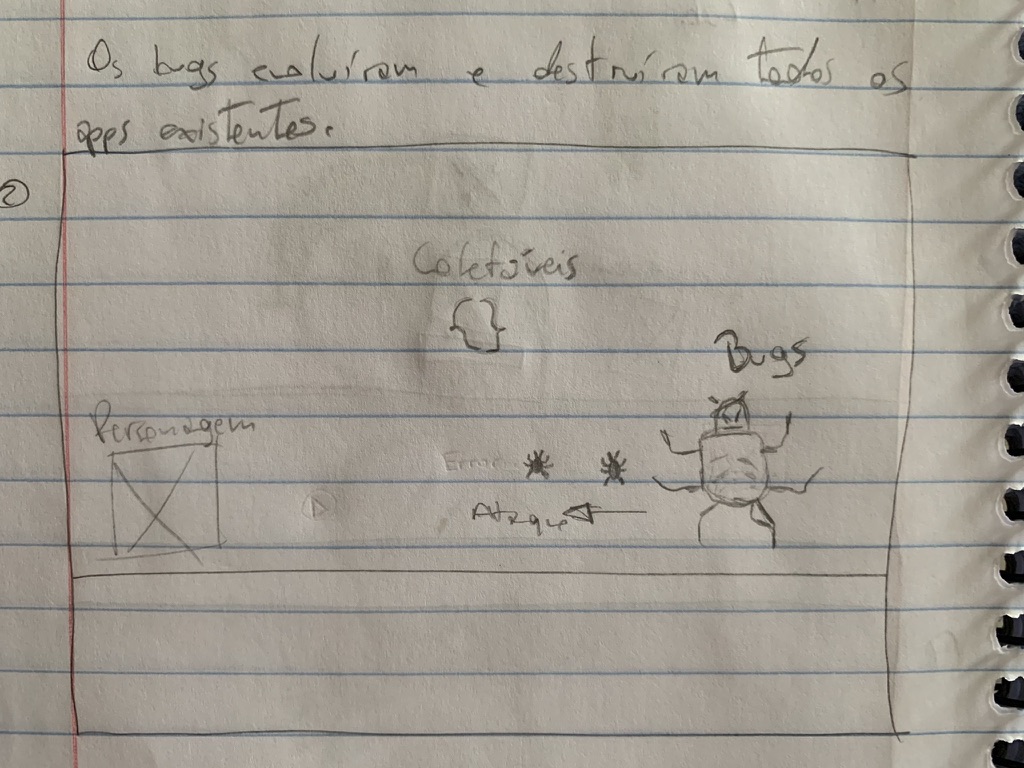 Os bugs evoluíram e destruíram todos os
apps existentes.
2
Coletáveis
{}
Bugs
Personagem
Error
Ataque